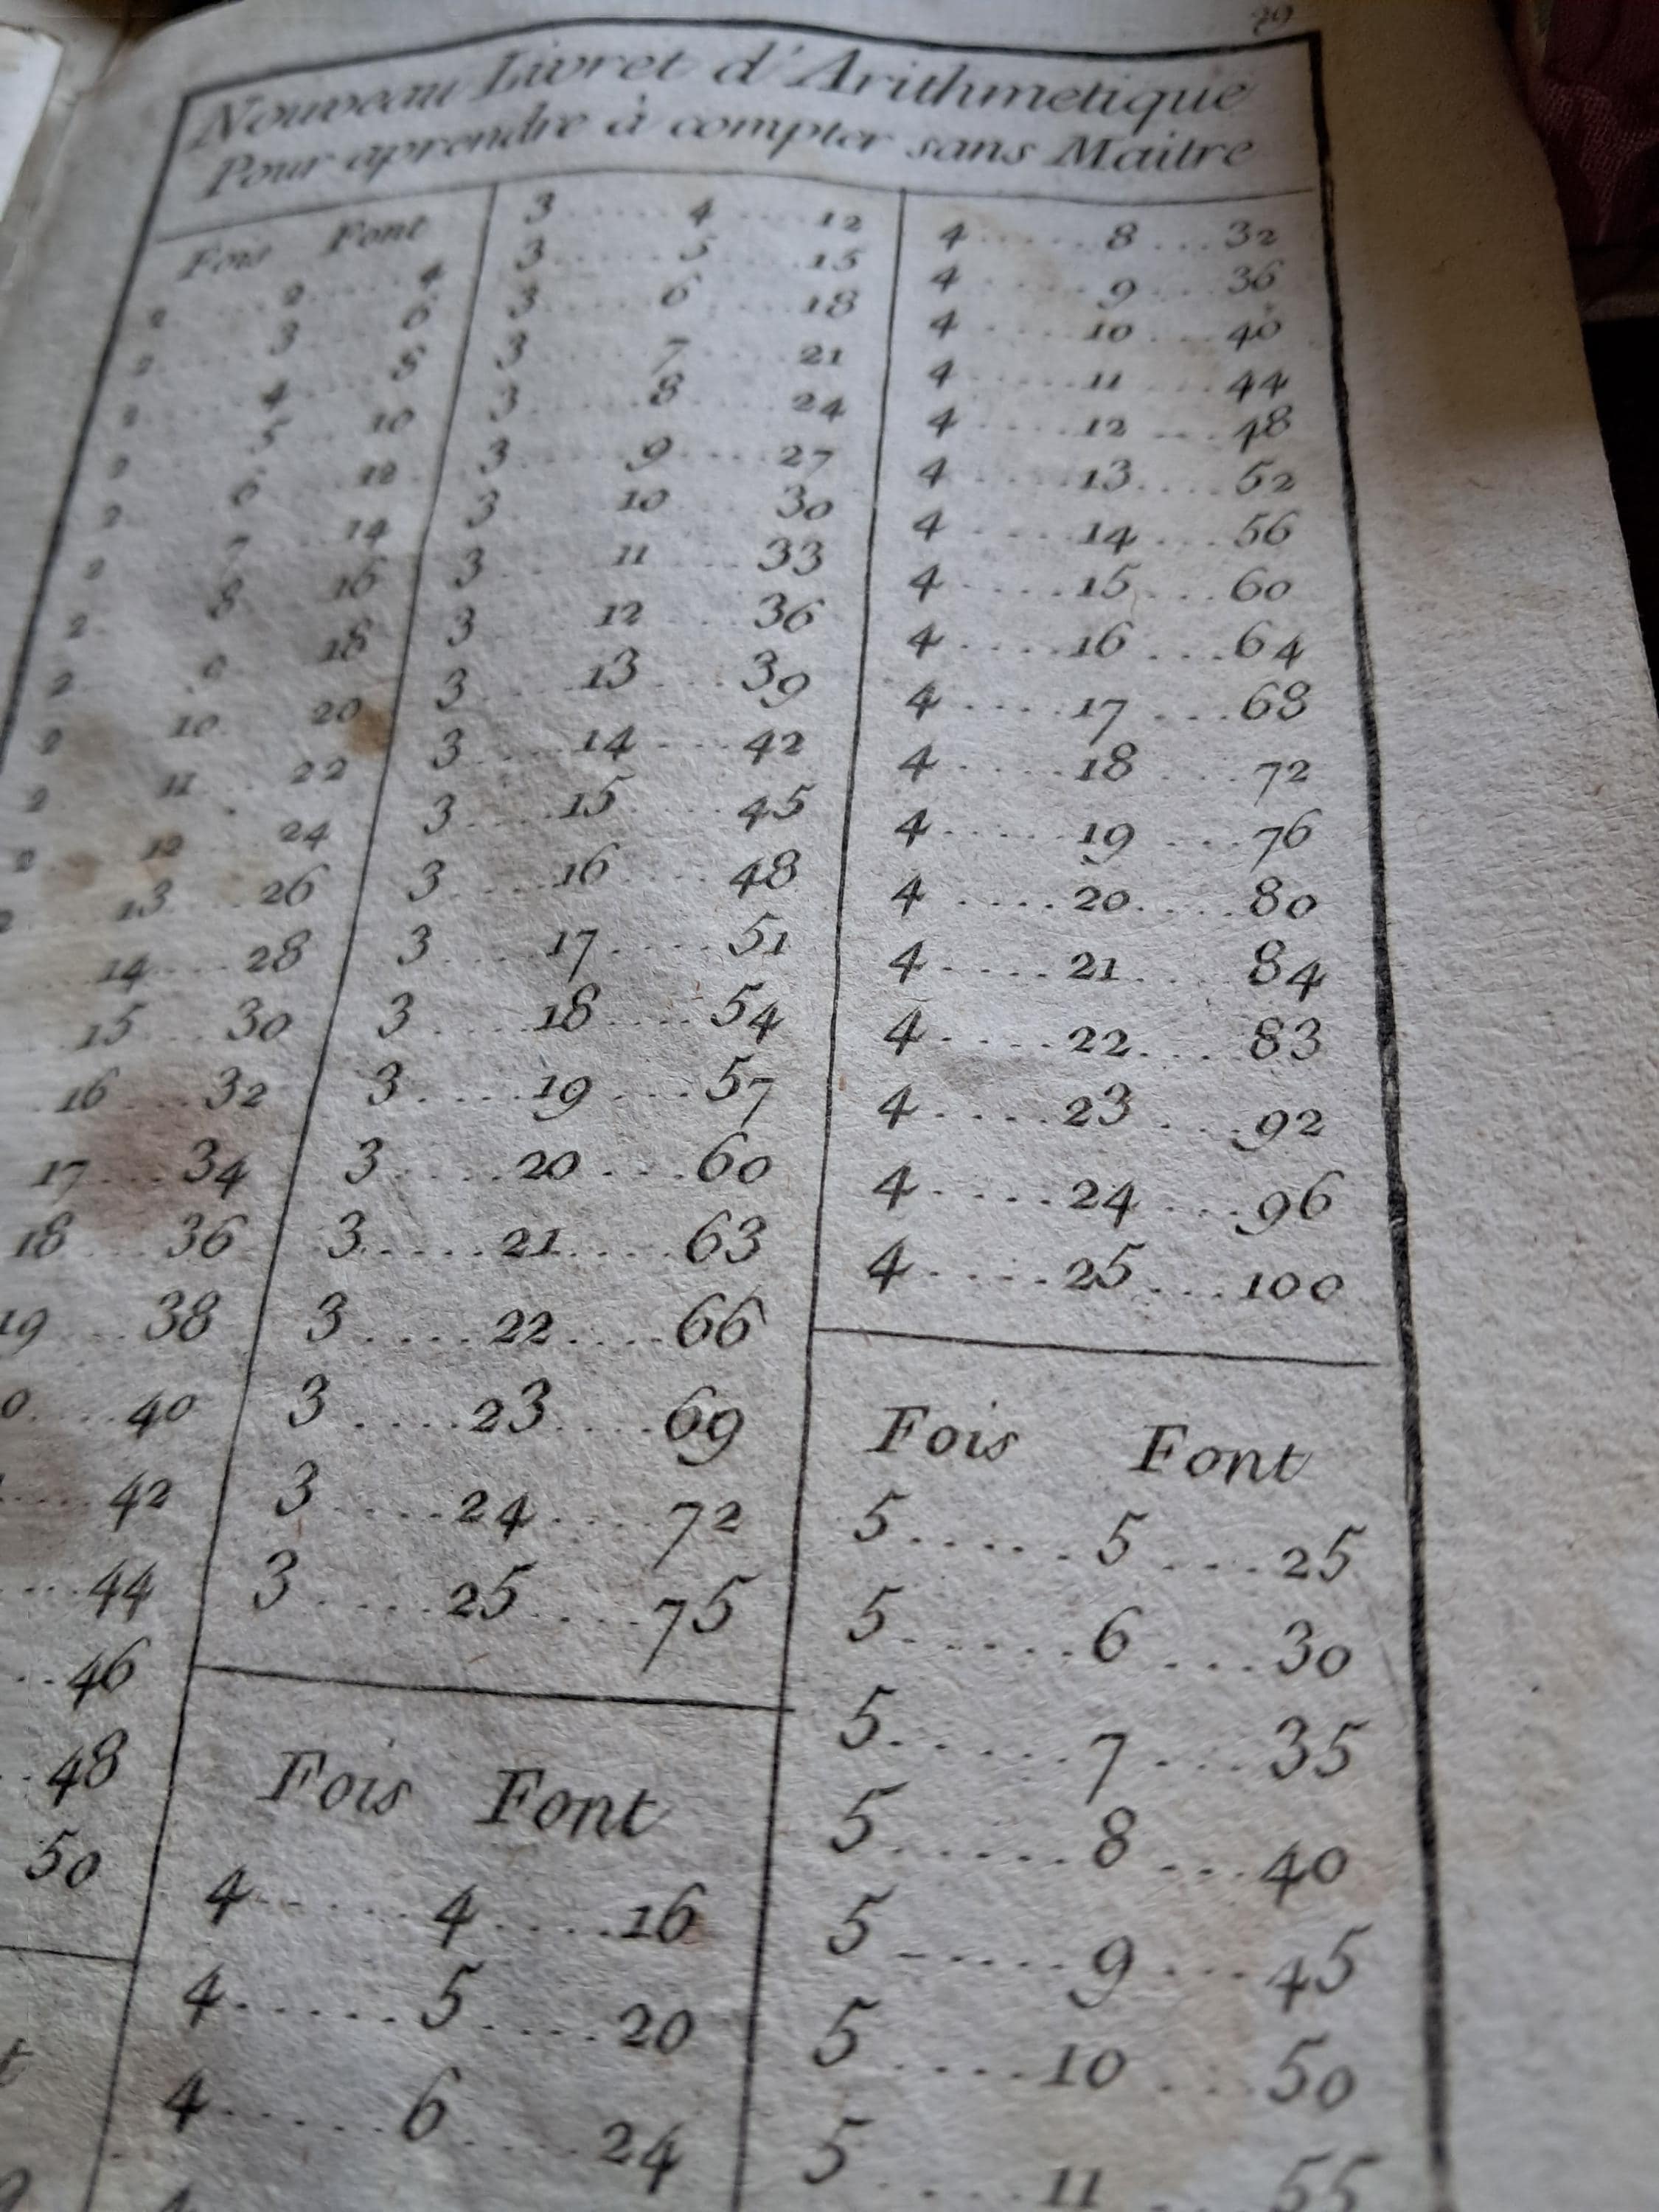 39
Nouveau Livret d'Arithmetique
Pour aprendre à compter sans Maitre
Fois Font
2 2 4
2 3 6
2 4 8
2 5 10
2 6 12
2 7 14
2 8 16
2 9 18
2 10 20
2 11 22
2 12 24
2 13 26
14 28
15 30
16 32
17 34
18 36
19 38
0 40
42
44
46
48
50
3 4 12
3 5 15
3 6 18
3 7 21
3 8 24
3 9 27
3 10 30
3 11 33
3 12 36
3 13 39
3 14 42
3 15 45
3 16 48
3 17 51
3 18 54
3 19 57
3 20 60
3 21 63
3 22 66
3 23 69
3 24 72
3 25 75
Fois Font
4 4 16
4 5 20
4 6 24
4 8 32
4 9 36
4 10 40
4 11 44
4 12 48
4 13 52
4 14 56
4 15 60
4 16 64
4 17 68
4 18 72
4 19 76
4 20 80
4 21 84
4 22 83
4 23 92
4 24 96
4 25 100
Fois Font
5 5 25
5 6 30
5 7 35
5 8 40
5 9 45
5 10 50
5 11 55